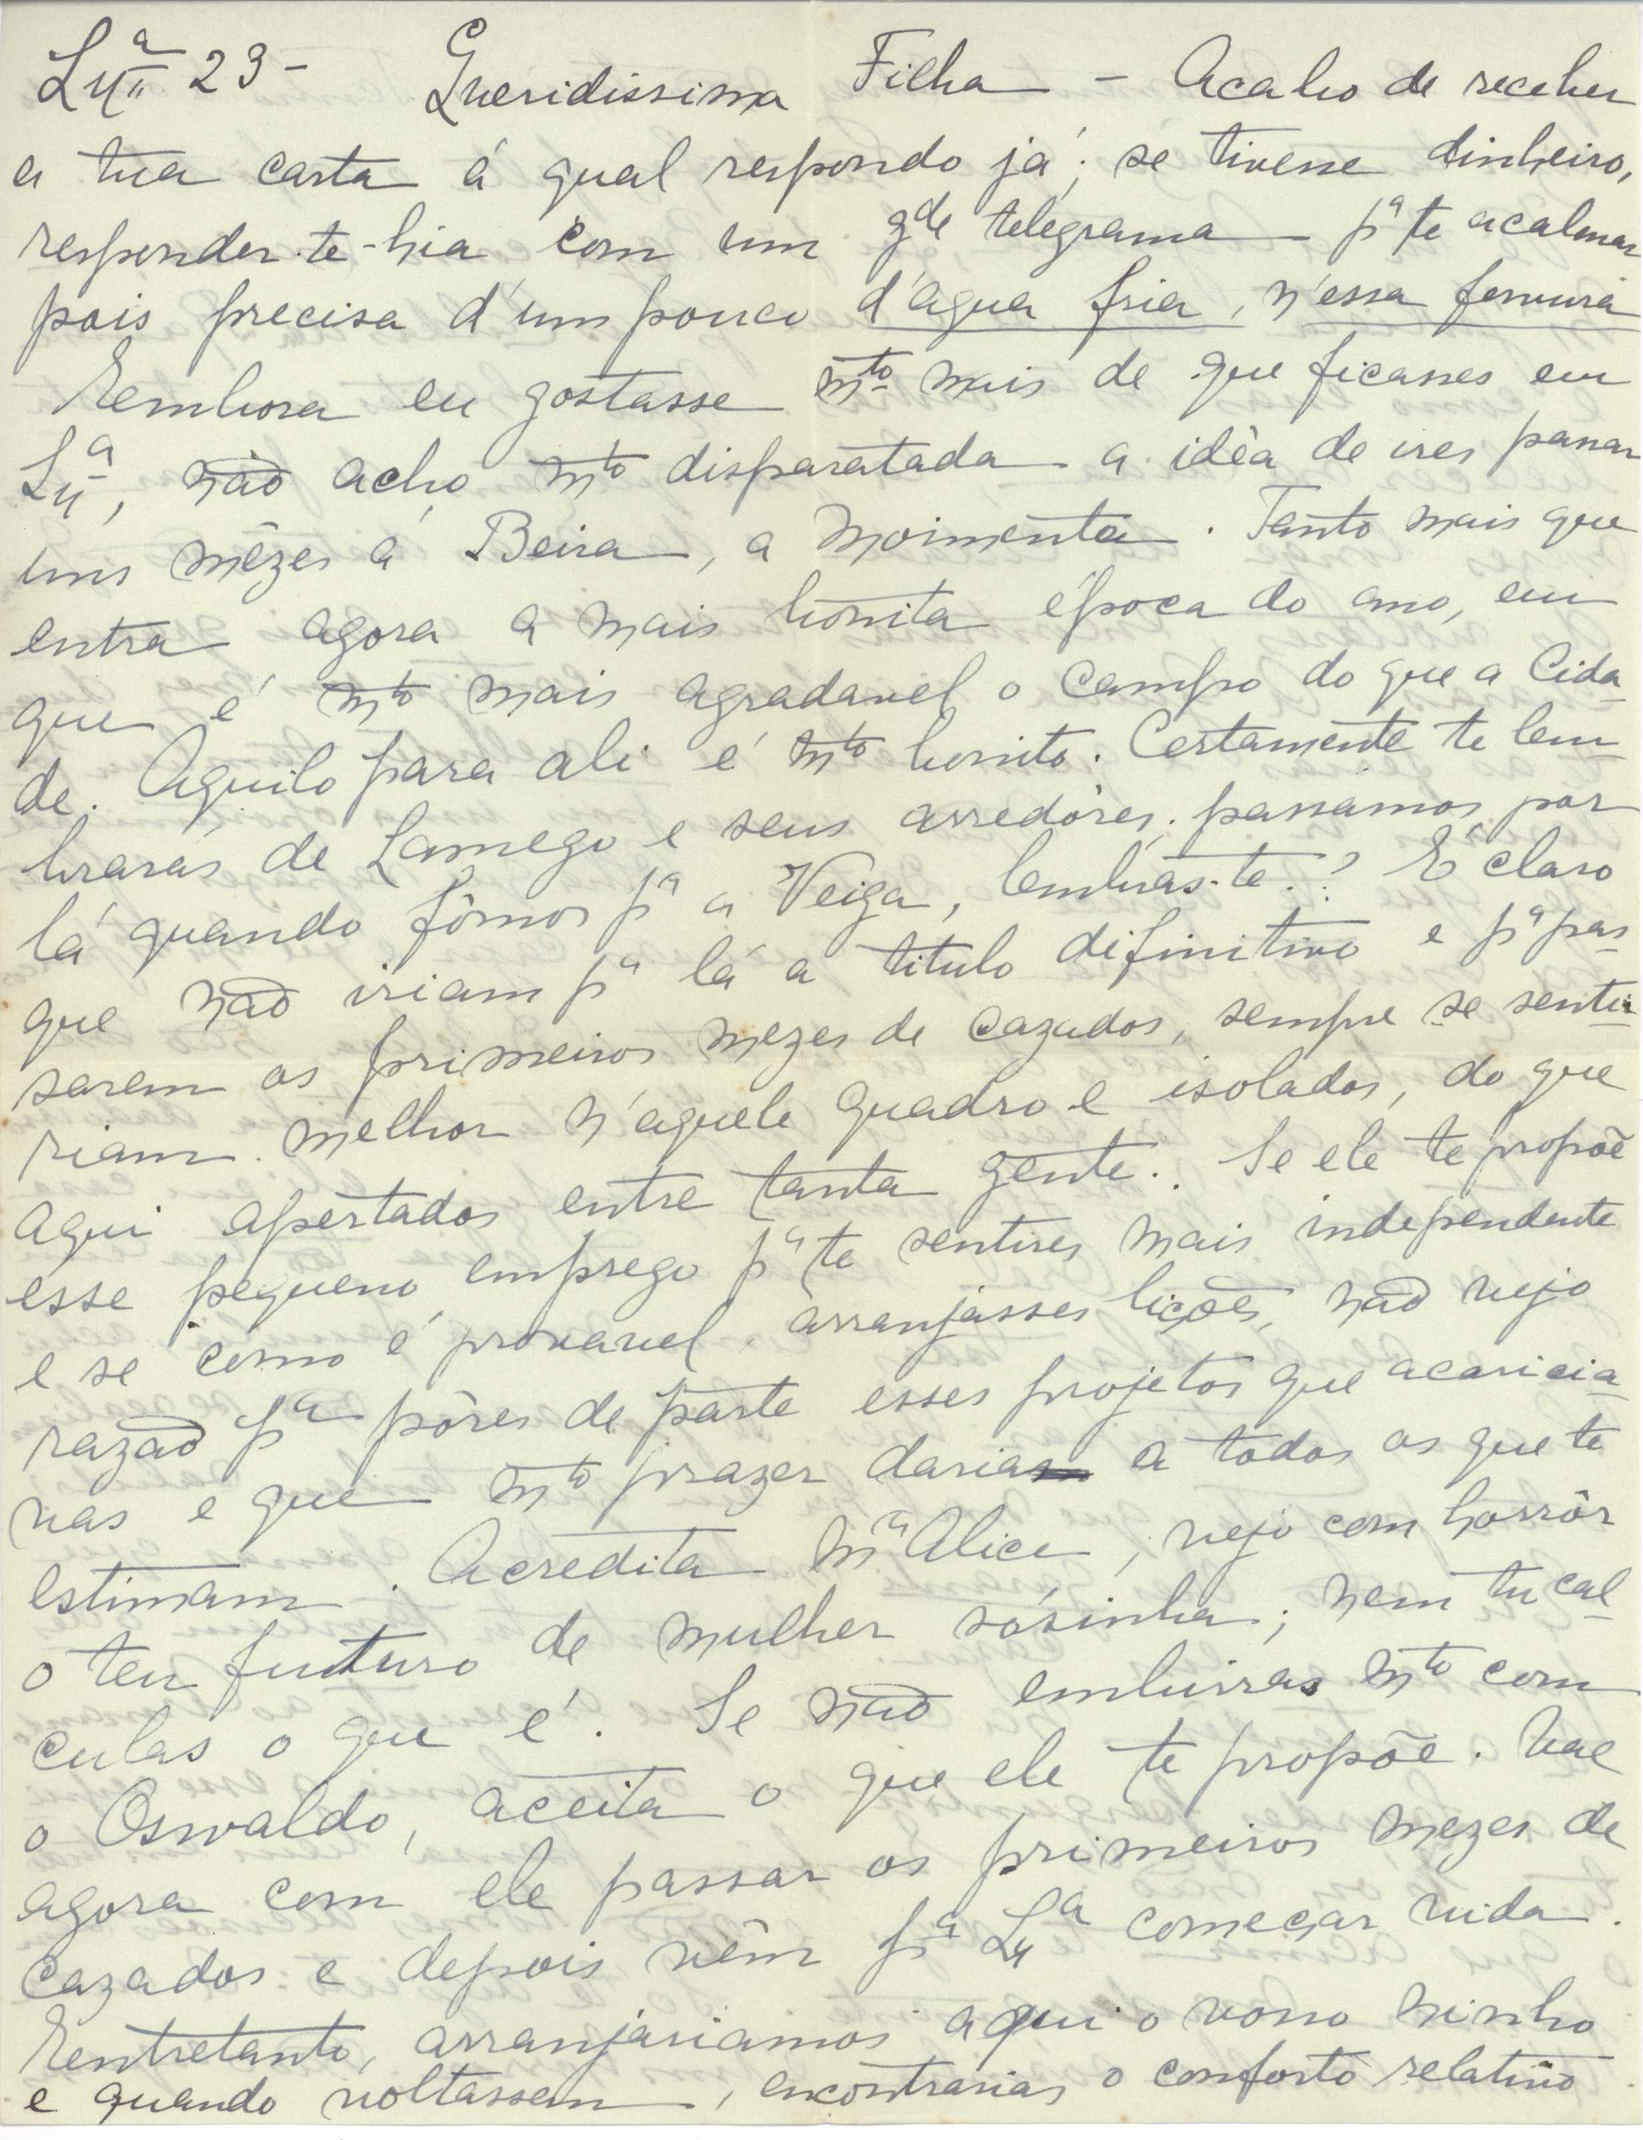 Lxª 23 - Queridissima Filha - Acabo de receber
a tua carta á qual respondo já; se tivesse dinheiro,
responder-te-hia com um gde telegrama pª te acalmar
pois precisa d'um pouco d'agua fria, n'essa fervura
Embora eu gostasse mto mais de que ficasses em
Lxª, não acho mto disparatada a idêa de ires passar
uns mêzes á Beira, a Moimenta. Tanto mais que
entra agora a mais bonita época do ano, em
que é mto mais agradavel o campo do que a Cida-
de. Aquilo para ali é mto bonito. Certamente te lem-
brarás de Lamego e seus arredôres; passámos por
lá quando fômos pª a Veiga, lembras-te? É claro
que não iriam pª lá a titulo difinitivo e pª pas-
sarem os primeiros mezes de cazados, sempre se senti-
riam melhor n'aquele quadro e isolados, do que
aqui apertados entre tanta gente. Se ele te propõe
esse pequeno emprego pª te sentires mais independente
e se como é provavel arranjásses lições, não vejo
razão pª pôres de parte esses projetos que acaricia-
vas e que mto prazer daria a todos os que te
estimam. Acredita Mª Alice, vejo com horrôr
o teu futuro de mulher sósinha; nem tu cal-
culas o que é. Se não embirras mto com
o Oswaldo, aceita o que ele te propõe. Vae
agora com ele passar os primeiros mezes de
cazados e depois vêm pª Lxª começar vida.
Entretanto, arranjariamos aqui o vosso ninho
e quando voltassem, encontrarias o conforto relativo